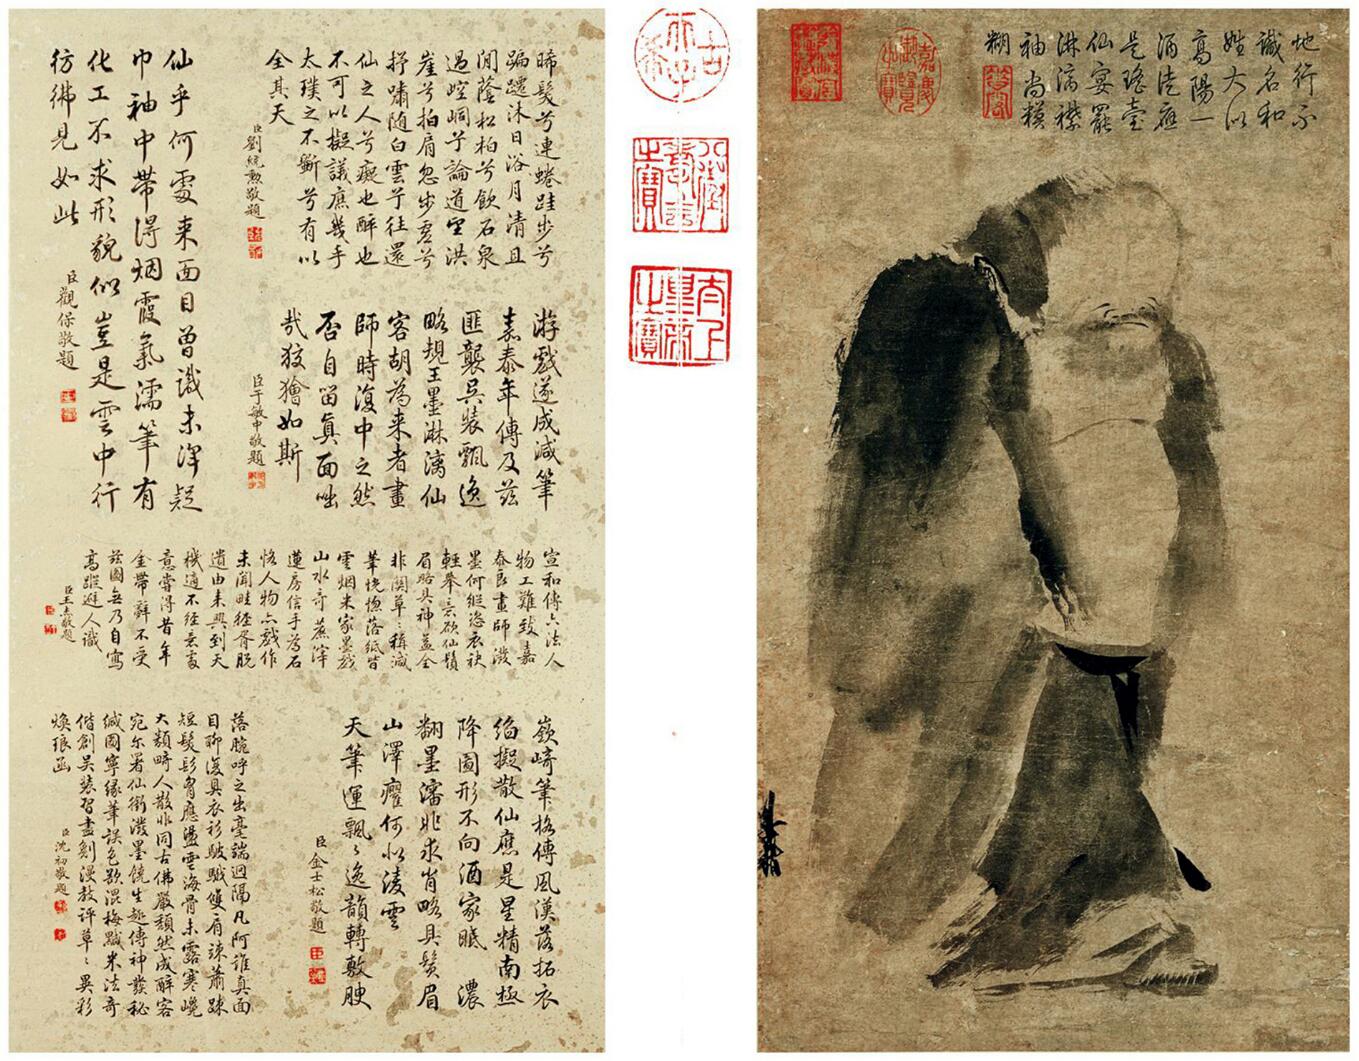 地行不
識名和
姓大似
高陽一
酒徒應
是瑤臺
仙宴罷
淋漓襟
袖尚模
糊
嘉慶御覽之寶
古希天子
八徵耄念之寶
太上皇帝之寶
晞髮兮連蜷跬步兮
蹁躚沐日浴月清且
閒蔭松柏兮飲石泉
過崆峒兮論道望洪
崖兮拍肩忽步虛兮
抒嘯隨白雲兮往還
仙之人兮癡也醉也
不可以擬議庶幾乎
太璞之不斲兮有以
全其天
臣劉統勳敬題
仙乎何處来面目曾識未渾疑
巾袖中帶得烟霞氣濡筆有
化工不求形貌似豈是雲中行
彷彿見如此
臣觀保敬題
游戲遂成減筆
嘉泰年傳及茲
匪襲吳裝飄逸
略規王墨淋漓仙
客胡為来者畫
師時復中之然
否自留真面咄
哉狡獪如斯
臣于敏中敬題
宣和傳六法人
物工難致嘉
泰良畫師潑
墨何縱恣衣袂
輕舉言欲仙鬚
眉略具神益全
非關草〻稱減
筆恍惚落紙皆
雲烟米家墨戲
山水奇蔗滓
蓮房信手為石
恪人物亦戲作
未聞畦徑胥脫
遺由来興到天
機適不経意處
意嘗得昔年
金帶辭不受
茲圖無乃自寫
高蹤避人識
臣王杰敬題
嶔崎筆格傳風漢落拓衣
袍擬散仙應是星精南極
降圖形不向酒家眠 濃
翻墨瀋非求肖略具鬚眉
山澤癯何似凌雲
天筆運飄〻逸韻轉敷腴
臣金士松敬題
落腕呼之出毫端迥隔凡阿誰真面
目聊復具衣衫皴皵雙肩竦蕭踈
短髮髟胷應盪雲海骨未露寒巉
大類畸人散非同古佛嚴頹然成醉客
宛尓署仙銜潑墨饒生趣傳神發秘
緘圖寧緣筆誤色欲混梅黬米法奇
偕創吳裝習盡剗漫教評草〻異彩
煥琅函
臣沈初敬題